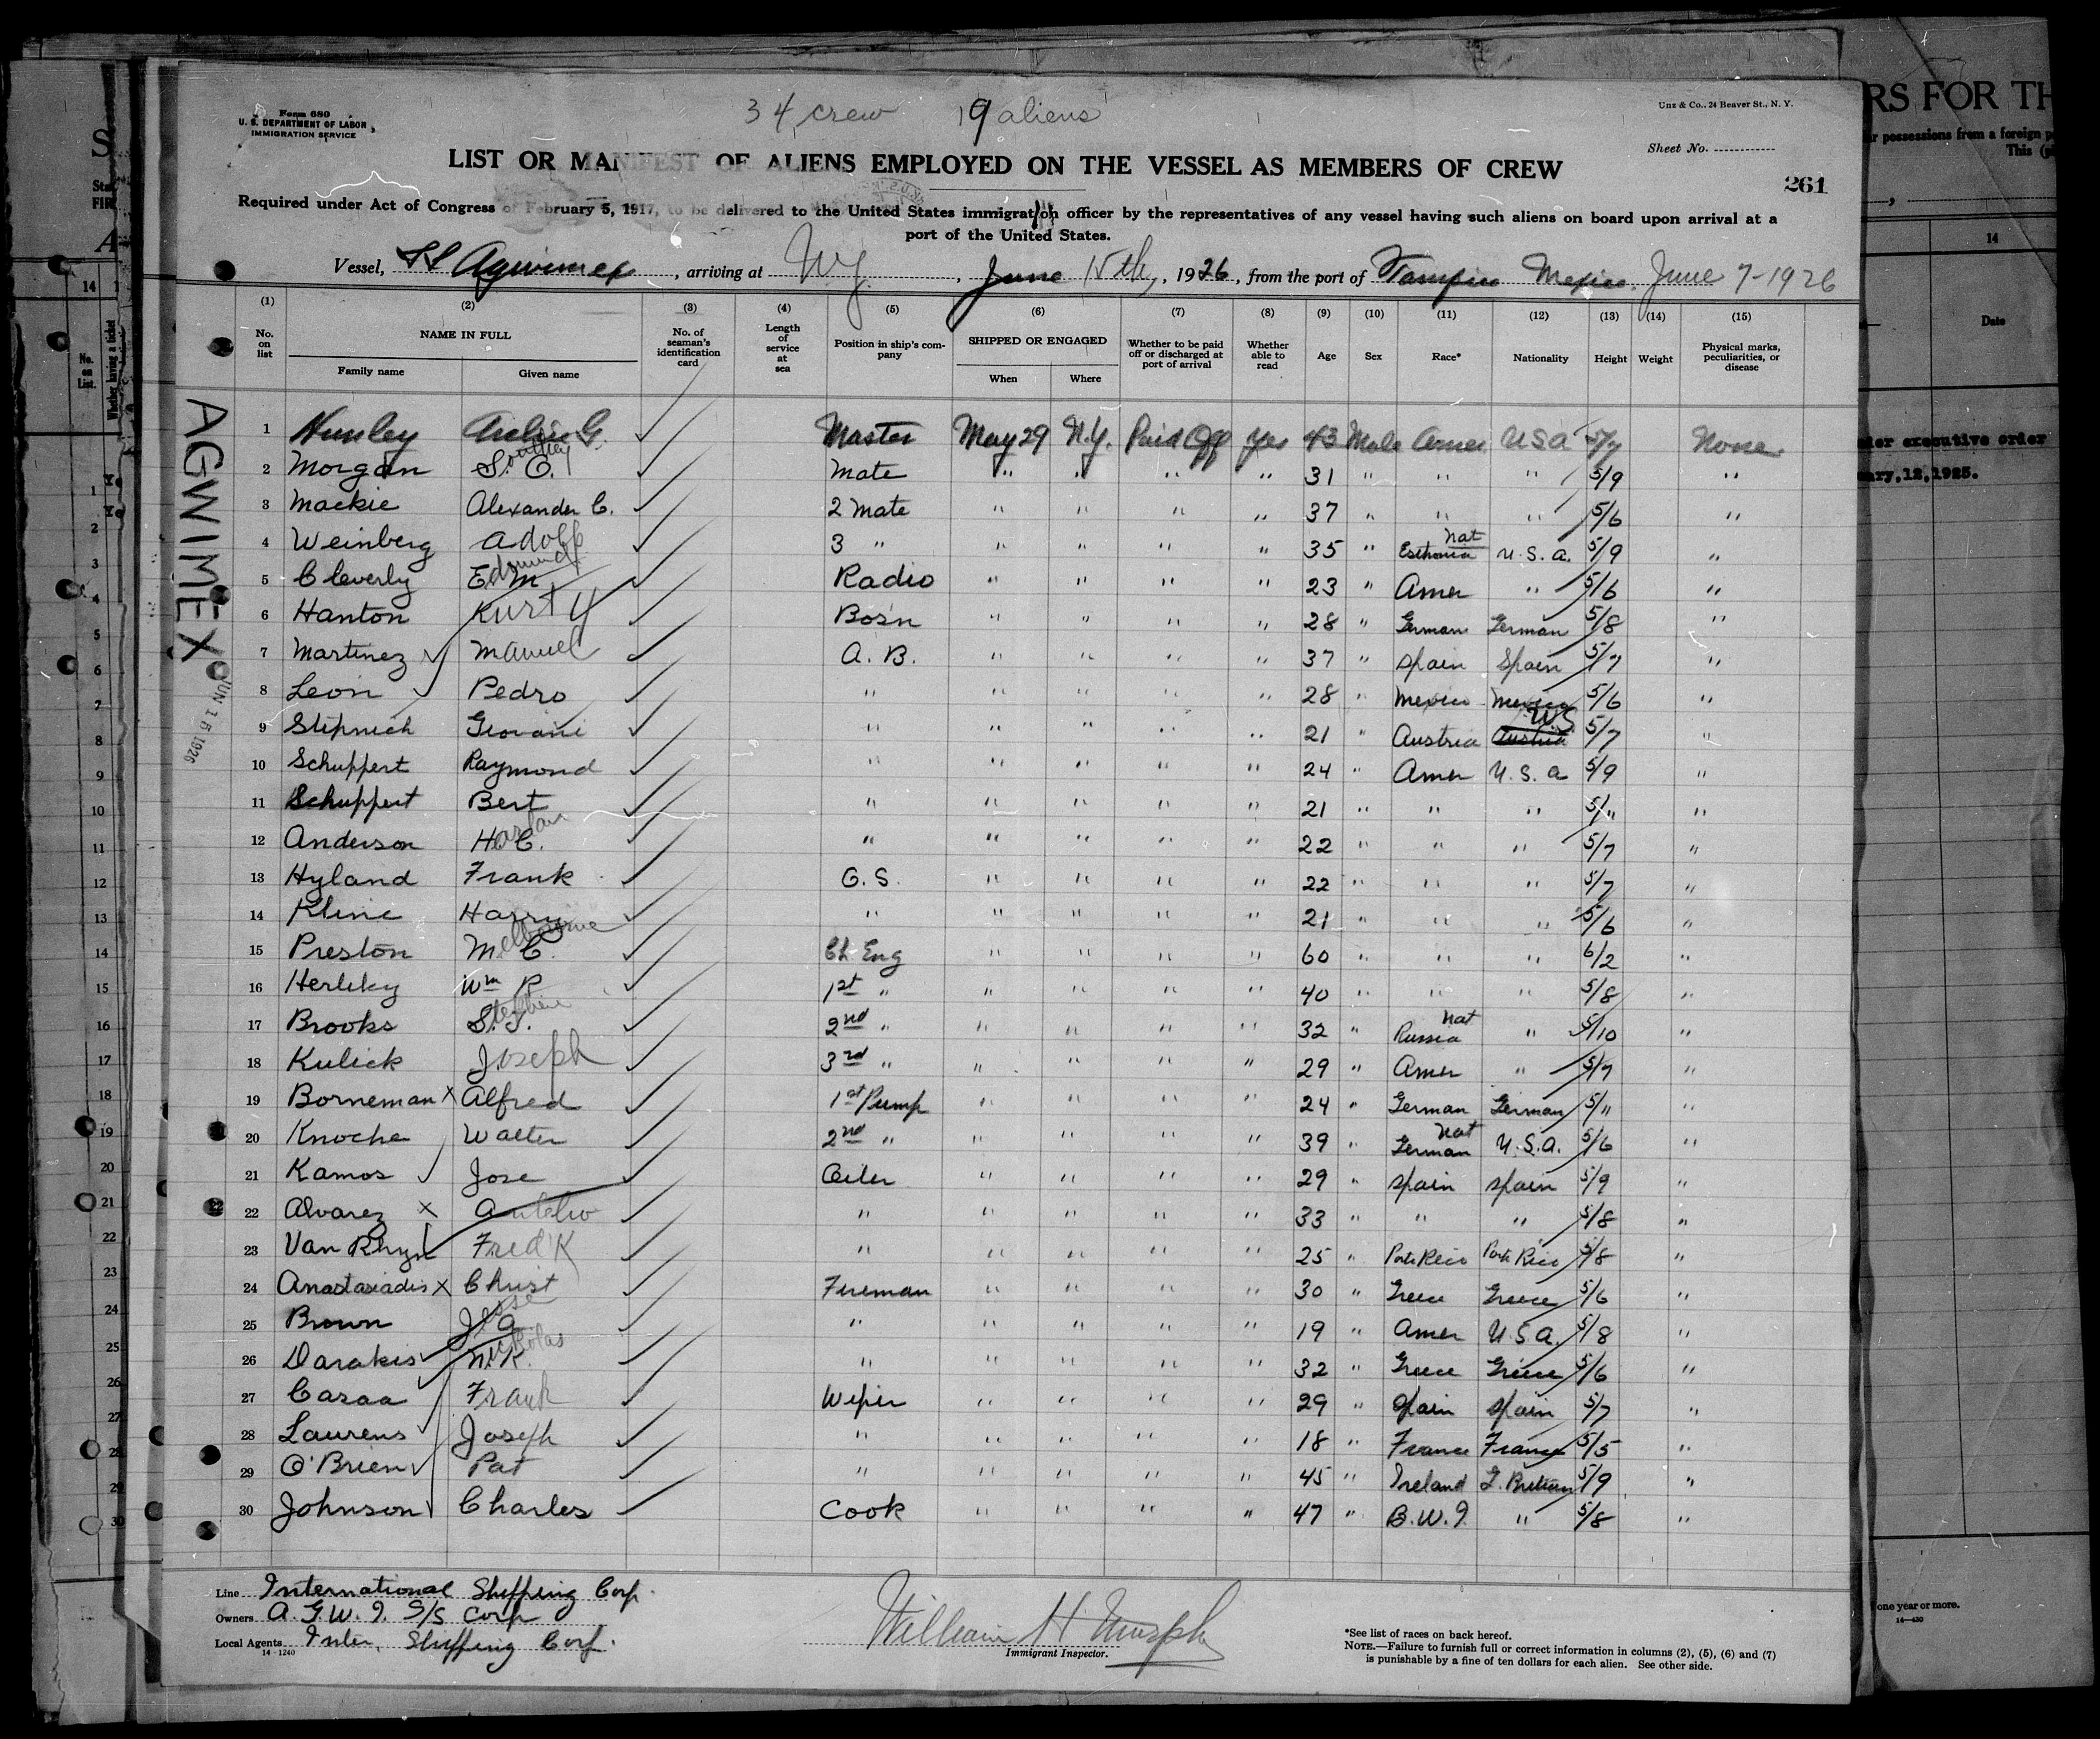 34 crew 19 aliens
Form 680
U. S. DEPARTMENT OF LABOR
IMMIGRATION SERVICE
Unz & Co., 24 Beaver St., N. Y.
Sheet No.
LIST OR MANIFEST OF ALIENS EMPLOYED ON THE VESSEL AS MEMBERS OF CREW
261
Required under Act of Congress of February 5, 1917, to be delivered to the United States immigration officer by the representatives of any vessel having such aliens on board upon arrival at a
port of the United States.
Vessel, SS Agwimex, arriving at NY, June 15th, 1926, from the port of Tampico Mexico. June 7-1926
(1) (2) (3) (4) (5) (6) (7) (8) (9) (10) (11) (12) (13) (14) (15)
No. on list NAME IN FULL Family name Given name No. of seaman's identification card Length of service at sea Position in ship's company SHIPPED OR ENGAGED When Where Whether to be paid off or discharged at port of arrival Whether able to read Age Sex Race* Nationality Height Weight Physical marks, peculiarities, or disease
AGWIMEX
JUN 15 1926
1 Hunley Archie G. Master May 29 N.Y. Paid Off Yes 43 Male Amer USA 5/7 None
2 Morgan S. O. Mate " " " " 31 " " " 5/9 "
3 Mackie Alexander C. 2 Mate " " " " 37 " " " 5/6 "
4 Weinberg Adolf 3 " " " " " 35 " Esthonia Nat U.S.A. 5/9 "
5 Cleverly E. M Edmund Radio " " " " 23 " Amer " 5/6 "
6 Hanton Kurt Bos'n " " " " 28 " German German 5/8 "
7 Martinez Manuel A. B. " " " " 37 " Spain Spain 5/7 "
8 Leon Pedro " " " " " 28 " Mexico Mexico 5/6 "
9 Stipnich Giovani " " " " " 21 " Austria Austria US 5/7 "
10 Schuppert Raymond " " " " " 24 " Amer U.S.A 5/9 "
11 Schuppert Bert " " " " " 21 " " " 5/11 "
12 Anderson H. C. " " " " " 22 " " " 5/7 "
13 Hyland Frank O.S. " " " " 22 " " " 5/7 "
14 Kline Harry " " " " " 21 " " " 5/6 "
15 Preston M. C. Melbourne Ch Eng " " " " 60 " " " 6/2 "
16 Herlihy Wm P. 1st " " " " " 40 " " " 5/8 "
17 Brooks S. J. 2nd " " " " " 32 " Russia Nat " 5/10 "
18 Kulick Joseph 3rd " " " " " 29 " Amer " 5/7 "
19 Borneman x Alfred 1st Pump " " " " 24 " German German 5/11 "
20 Knoche Walter 2nd " " " " " 39 " German Nat U.S.A. 5/6 "
21 Ramos Jose Oiler " " " " 29 " Spain Spain 5/9 "
22 Alvarez x " " " " " 33 " " " 5/8 "
23 Van Rhyn Fred'K " " " " " 25 " Porto Rico Porto Rico 5/8 "
24 Anastasiadis x Christ Fireman " " " " 30 " Greece Greece 5/6 "
25 Brown J. A. Jesse " " " " " 19 " Amer U.S.A. 5/8 "
26 Darakis N. K. Nickolas " " " " " 32 " Greece Greece 5/6 "
27 Casaa Frank Wiper " " " " 29 " Spain Spain 5/7 "
28 Laurens Joseph " " " " " 18 " France France 5/5 "
29 O'Brien Pat " " " " " 45 " Ireland G. Britian 5/9 "
30 Johnson Charles Cook " " " " 47 " B.W.I. " 5/8 "
Line International Shipping Corp.
Owners A.G.W.I. S/S Corp
Local Agents Inter. Shipping Corp.
14-1240
William H Murphy
Immigrant Inspector.
*See list of races on back hereof.
NOTE.—Failure to furnish full or correct information in columns (2), (5), (6) and (7)
is punishable by a fine of ten dollars for each alien. See other side.
RS FOR TH
possessions from a foreign
This
14
Date
executive order
12, 1925.
one year or more.
14-430